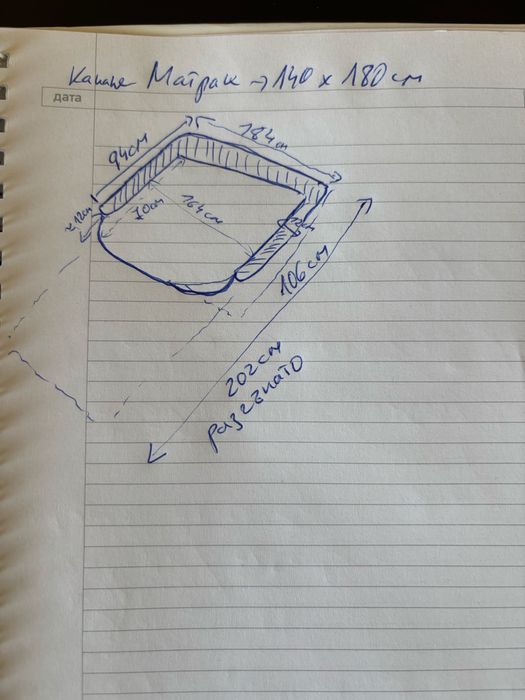 Канапе Матрак → 140 x 180 см
дата
94см
184см
12см
70см
164см
12см
106см
202см
разгънато